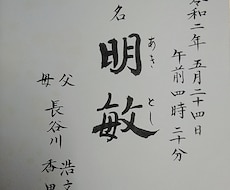 令和二年 五月二十四日
午前四時二十分
名 明敏
あき とし
父 長谷川 浩
母 香